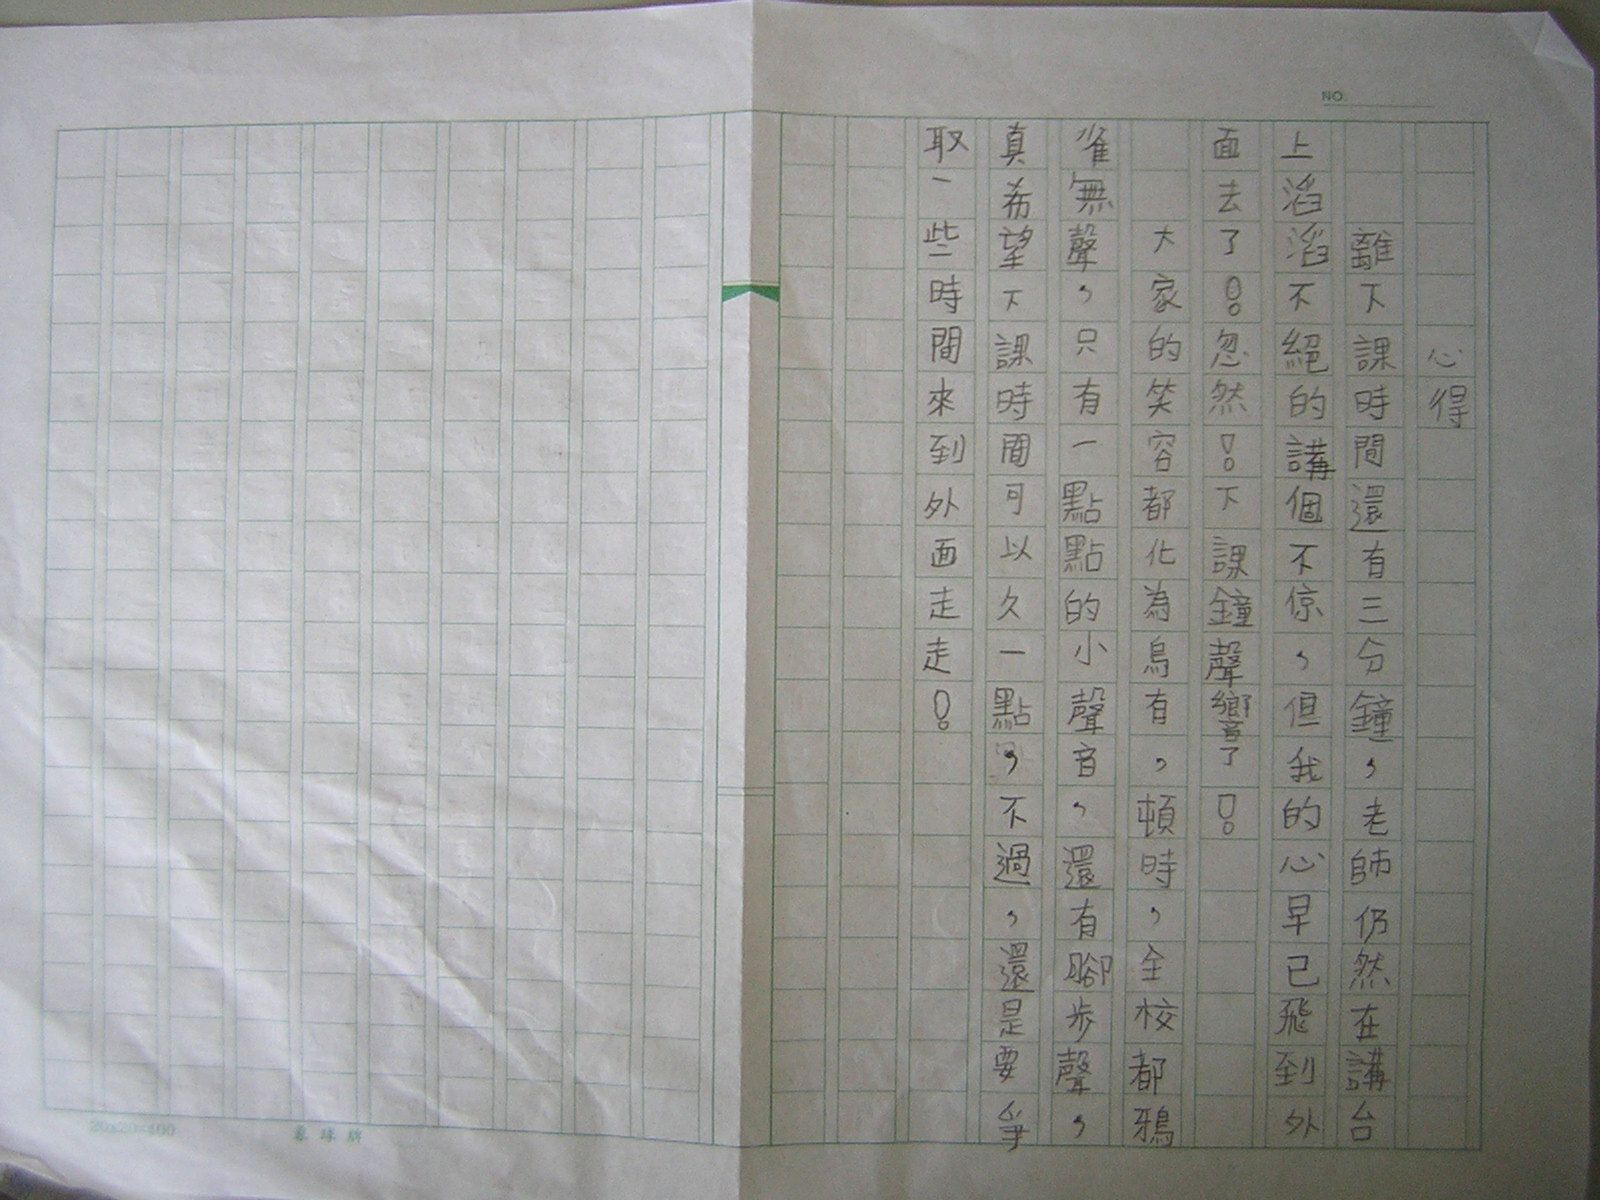 NO.
心得
離下課時間還有三分鐘，老師仍然在講台
上滔滔不絕的講個不停，但我的心早已飛到外
面去了！忽然！下課鐘聲響了！
大家的笑容都化為烏有，頓時，全校都鴉
雀無聲，只有一點點的小聲音，還有腳步聲，
真希望下課時間可以久一點，不過，還是要爭
取一些時間來到外面走走！
20×20=400